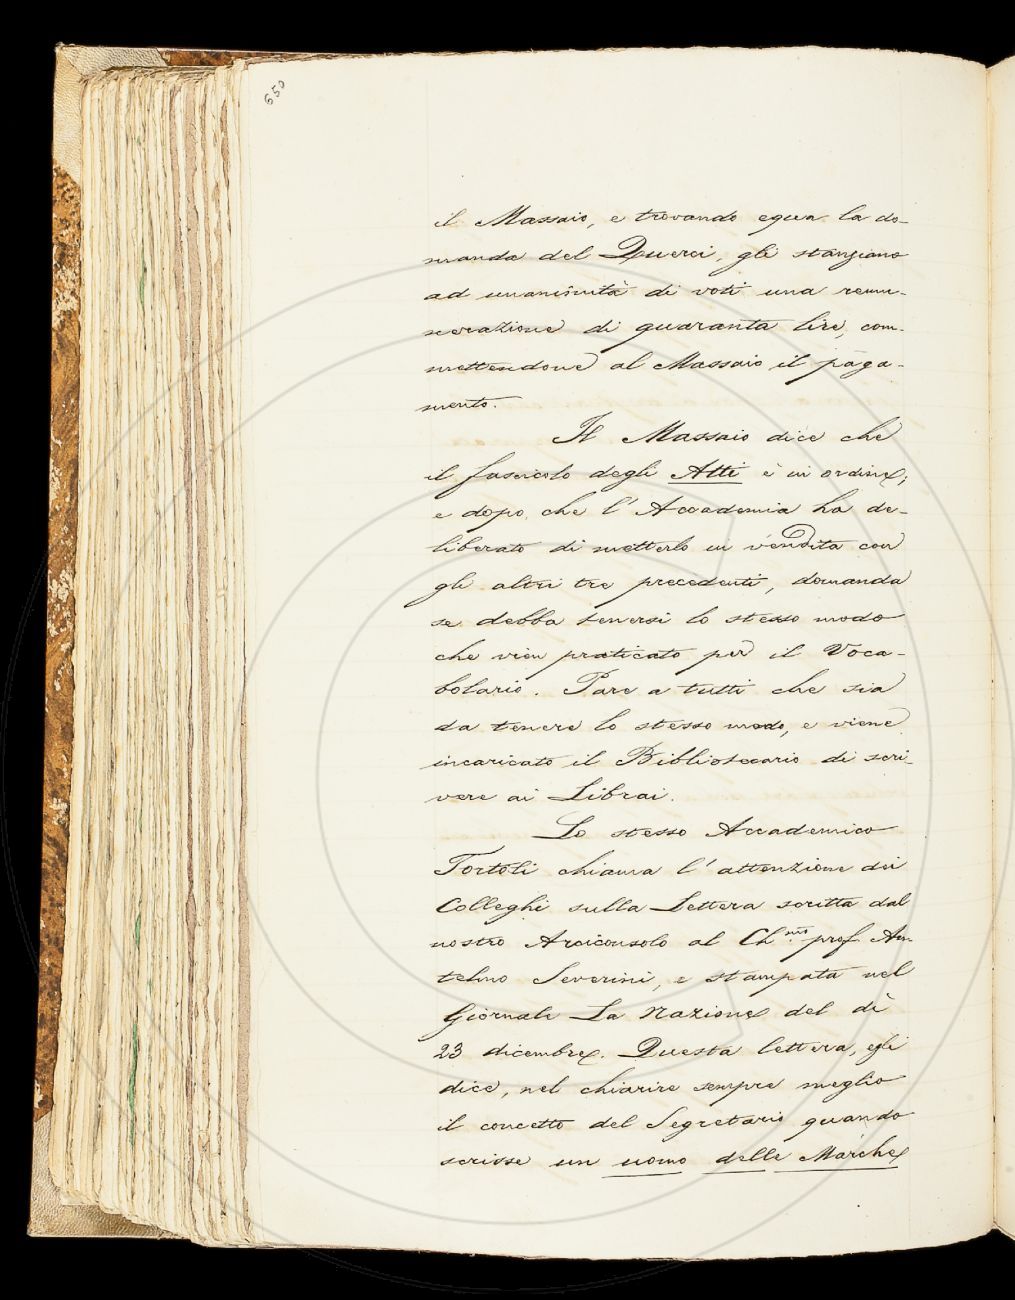 650
il Massaio, e trovando equa la do-
manda del Querci, gli stanziano
ad unanimità di voti una remu-
nerazione di quaranta lire, com-
mettendone al Massaio il paga-
mento.
Il Massaio dice che
il fascicolo degli Atti è in ordine;
e dopo che l'Accademia ha de-
liberato di metterlo in vendita con
gli altri tre precedenti, domanda
se debba tenersi lo stesso modo
che vien praticato per il Voca-
bolario. Pare a tutti che sia
da tenere lo stesso modo, e viene
incaricato il Bibliotecario di scri-
vere ai Librai.
Lo stesso Accademico
Tortoli chiama l'attenzione dei
Colleghi sulla Lettera scritta dal
nostro Arciconsolo al Ch.mo prof. An-
telmo Severini, e stampata nel
Giornale La Nazione del dì
23 dicembre. Questa lettera, egli
dice, nel chiarire sempre meglio
il concetto del Segretario quando
scrisse un uomo delle Marche